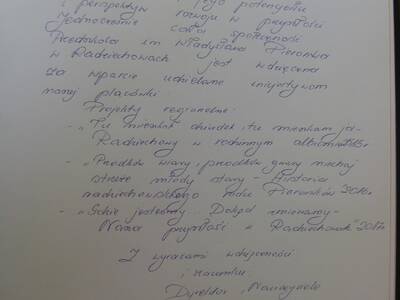 i perspektyw jego potencjału
rozwoju w przyszłości
Jednocześnie cała społeczność
Przedszkola im Władysława Pieronka
w Radziechowach jest wdzięczna
za wparcie udzielane inicjatywom
naszej placówki.
Projekty regionalne:
- „Tu mieszkał dziadek, tu mieszkam ja-
Radziechowy w rodzinnym albumie"
- „Przodków wiary, przodków
strzeże młody stary - Historia
radziechowskiego rodu Pieronków" 2016r.
- „Gdzie jesteśmy - Dokąd zmierzamy-
Nasza przyszłość w Radziechowach" 2017r.
Z wyrazami wdzięczności
i szacunku
Dyrektor, Nauczyciele